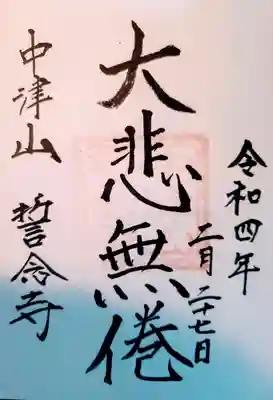 令和四年
二月二十七日
大悲無倦
中津山
誓念寺